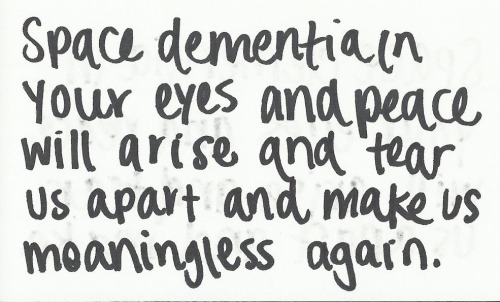 Space dementia in
your eyes and peace
will arise and tear
us apart and make us
meaningless again.